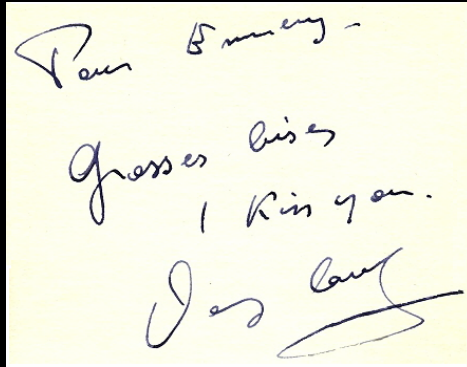 Pour
Grosses bises
I Kiss you.